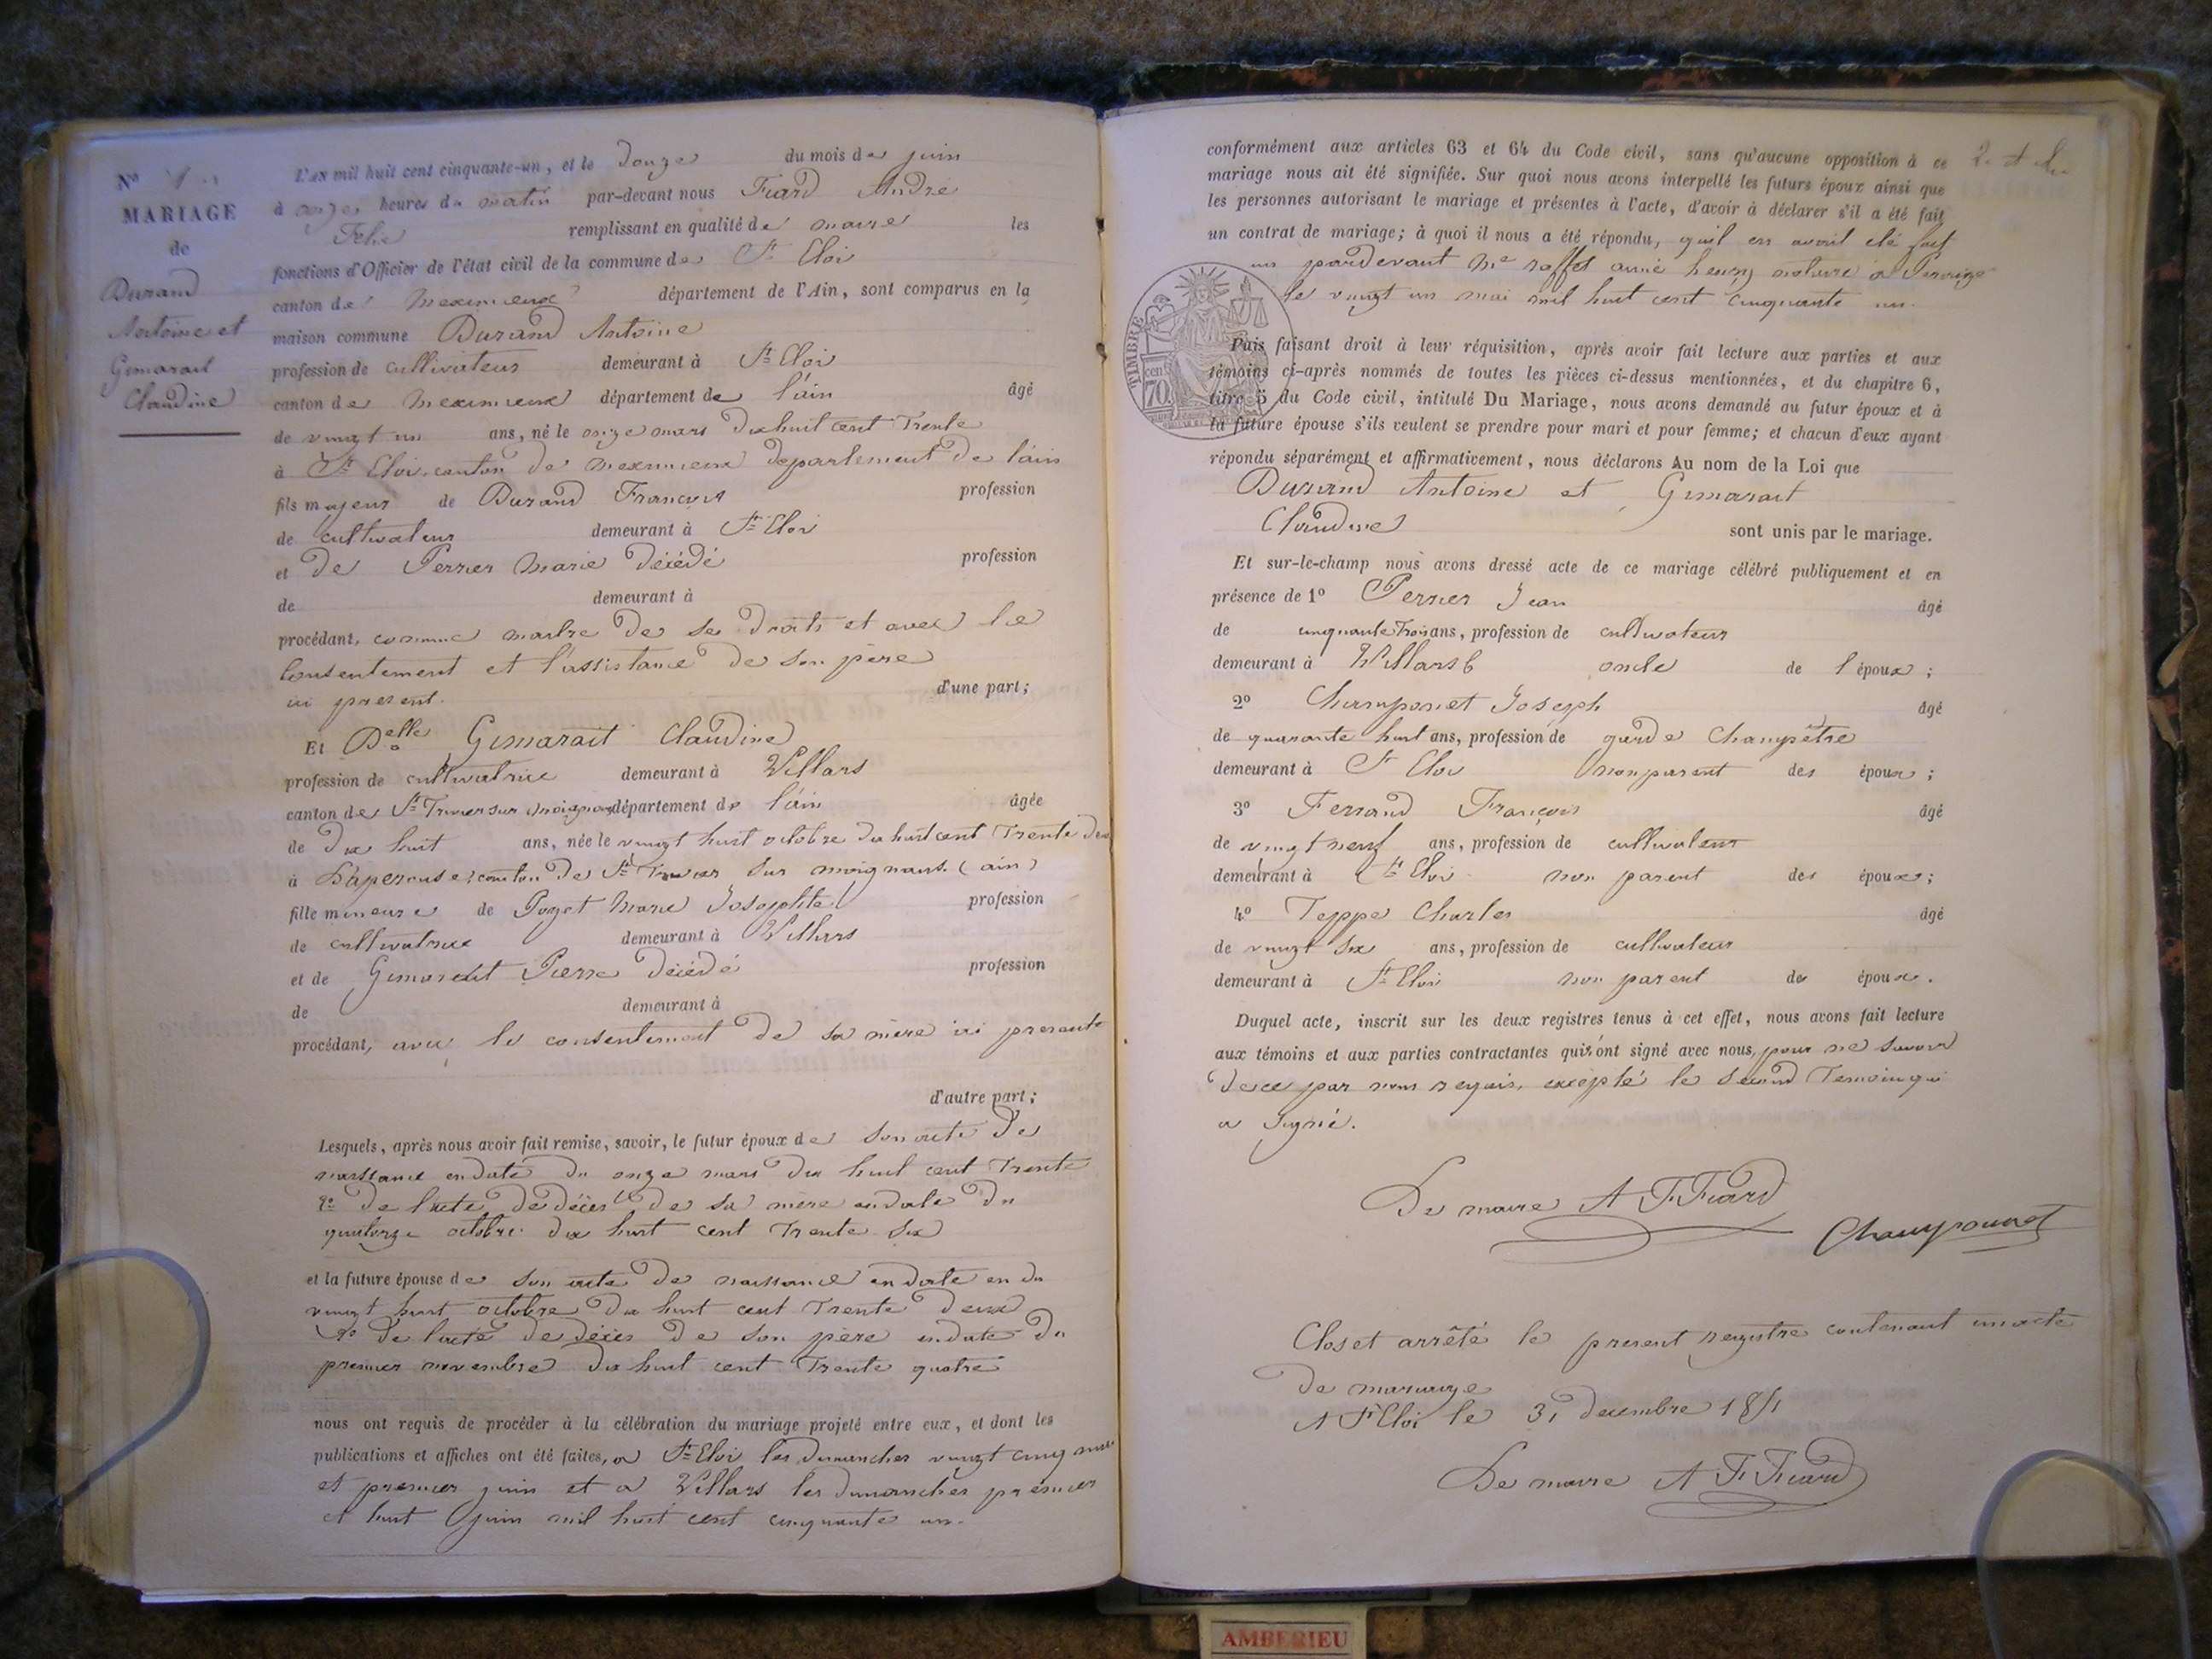 N° 1
MARIAGE
de
Durand
Antoine et
Gimarait
Claudine
L'an mil huit cent cinquante-un, et le douze du mois de juin
à onze heures du matin par-devant nous Fiard André
Félix remplissant en qualité de maire les
fonctions d'Officier de l'état civil de la commune de St Eloi
canton de Meximieux département de l'Ain, sont comparus en la
maison commune Durand Antoine
profession de cultivateur demeurant à St Eloi
canton de Meximieux département de l'ain âgé
de vingt un ans, né le onze mars dix huit cent Trente
à St Eloi, canton de Meximieux departement de l'ain
fils majeur de Durand François profession
de cultivateur demeurant à St Eloi
et de Perrier Marie décédé profession
de demeurant à
procédant, comme maitre de ses droits et avec le
Consentement et l'assistance de son père
ici present. d'une part;
Et Delle Gimarait Claudine
profession de cultivatrice demeurant à Villars
canton de St Trivier sur moignans département de l'ain âgée
de dix huit ans, née le vingt huit octobre dix huit cent Trente deux
à Lapeyrouse, canton de St Trivier sur moignans (ain)
fille mineure de Poget Marie Josephte profession
de cultivatrice demeurant à Villars
et de Gimarait Pierre décédé profession
de demeurant à
procédant, avec le consentement de sa mère ici presente
d'autre part;
Lesquels, après nous avoir fait remise, savoir, le futur époux de son acte de
naissance en date du onze mars dix huit cent Trente
2° de l'acte de décès de sa mère en date du
quatorze octobre dix huit cent Trente six
et la future épouse de son acte de naissance en date en du
vingt huit octobre dix huit cent Trente deux
2° de l'acte de décès de son père en date du
premier novembre dix huit cent Trente quatre
nous ont requis de procéder à la célébration du mariage projeté entre eux, et dont les
publications et affiches ont été faites, a St Eloi les dimanches vingt cinq mai
et premier juin et a Villars les dimanches premier
et huit juin mil huit cent cinquante un.
conformément aux articles 63 et 64 du Code civil, sans qu'aucune opposition à ce
mariage nous ait été signifiée. Sur quoi nous avons interpellé les futurs époux ainsi que
les personnes autorisant le mariage et présentes à l'acte, d'avoir à déclarer s'il a été fait
un contrat de mariage; à quoi il nous a été répondu, quil en avait été fait
un pardevant Me notaire a Perouge
le vingt un mai mil huit cent cinquante un.
TIMBRE
cent
70.
Puis faisant droit à leur réquisition, après avoir fait lecture aux parties et aux
témoins ci-après nommés de toutes les pièces ci-dessus mentionnées, et du chapitre 6,
titre 5 du Code civil, intitulé Du Mariage, nous avons demandé au futur époux et à
la future épouse s'ils veulent se prendre pour mari et pour femme; et chacun d'eux ayant
répondu séparément et affirmativement, nous déclarons Au nom de la Loi que
Durand Antoine et Gimarait
Claudine sont unis par le mariage.
Et sur-le-champ nous avons dressé acte de ce mariage célébré publiquement et en
présence de 1° Perrier Jean âgé
de cinquante Trois ans, profession de cultivateur
demeurant à Villars oncle de l'époux;
2° Champonet Joseph âgé
de quarante huit ans, profession de garde Champêtre
demeurant à St Eloi non parent des époux;
3° Ferrand François âgé
de vingt neuf ans, profession de cultivateur
demeurant à St Eloi non parent des époux;
4° Teppe Charles âgé
de vingt six ans, profession de cultivateur
demeurant à St Eloi non parent des époux.
Duquel acte, inscrit sur les deux registres tenus à cet effet, nous avons fait lecture
aux témoins et aux parties contractantes qui n'ont signé avec nous, pour ne savoir
de ce par nous requis, excepté le second Temoin qui
a signé.
Le maire A F Fiard
Champonnet
Clos et arrêté le present registre contenant un acte
de mariage
A St Eloi le 31 decembre 1851
Le maire A F Fiard
AMBERIEU